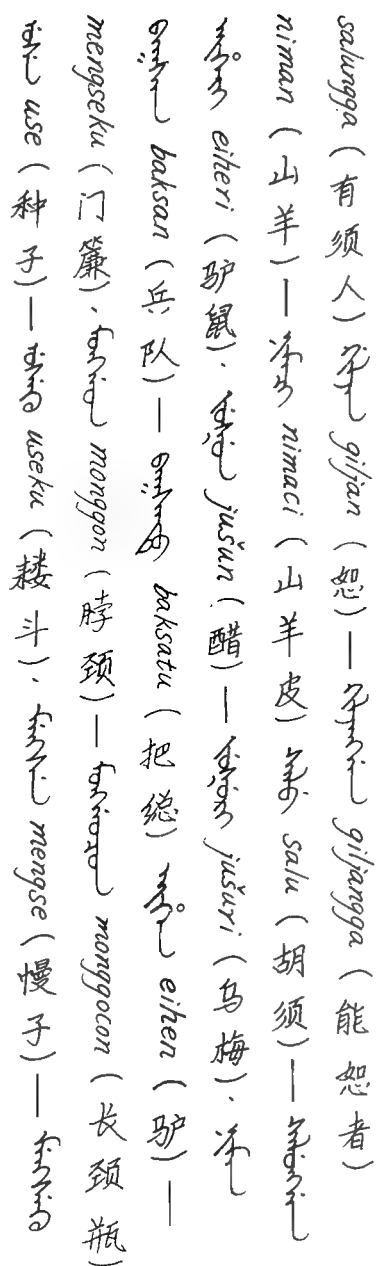 ᡠᠰᡝ use（种子）— ᡠᠰᡝᡴᡠ useku（耧斗）、ᠮᡝᠩᠰᡝ mengse（慢子）— ᠮᡝᠩᠰᡝᡴᡠ
mengseku（门簾）、ᠮᠣᠩᡤᠣᠨ monggon（脖颈）— ᠮᠣᠩᡤᠣᠴᠣᠨ monggocon（长颈瓶）
ᠪᠠᡴᠰᠠᠨ baksan（兵队）— ᠪᠠᡴᠰᠠᡨᡠ baksatu（把緫）ᡝᡳᡥᡝᠨ eihen（驴）—
ᡝᡳᡥᡝᡵᡳ eiheri（驴鼠）、ᠵᡠᡧᡠᠨ jušun（醋）— ᠵᡠᡧᡠᡵᡳ jušuri（乌梅）、ᠨᡳᠮᠠᠨ
niman（山羊）— ᠨᡳᠮᠠᠴᡳ nimaci（山羊皮）ᠰᠠᠯᡠ salu（胡须）— ᠰᠠᠯᡠᠩᡤᠠ
salungga（有须人）ᡤᡳᠯᠵᠠᠨ giljan（恕）— ᡤᡳᠯᠵᠠᠩᡤᠠ giljangga（能恕者）